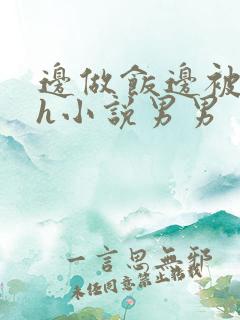 邊做飯邊被
h小說男男
一言思無邪
未經同意禁止轉載